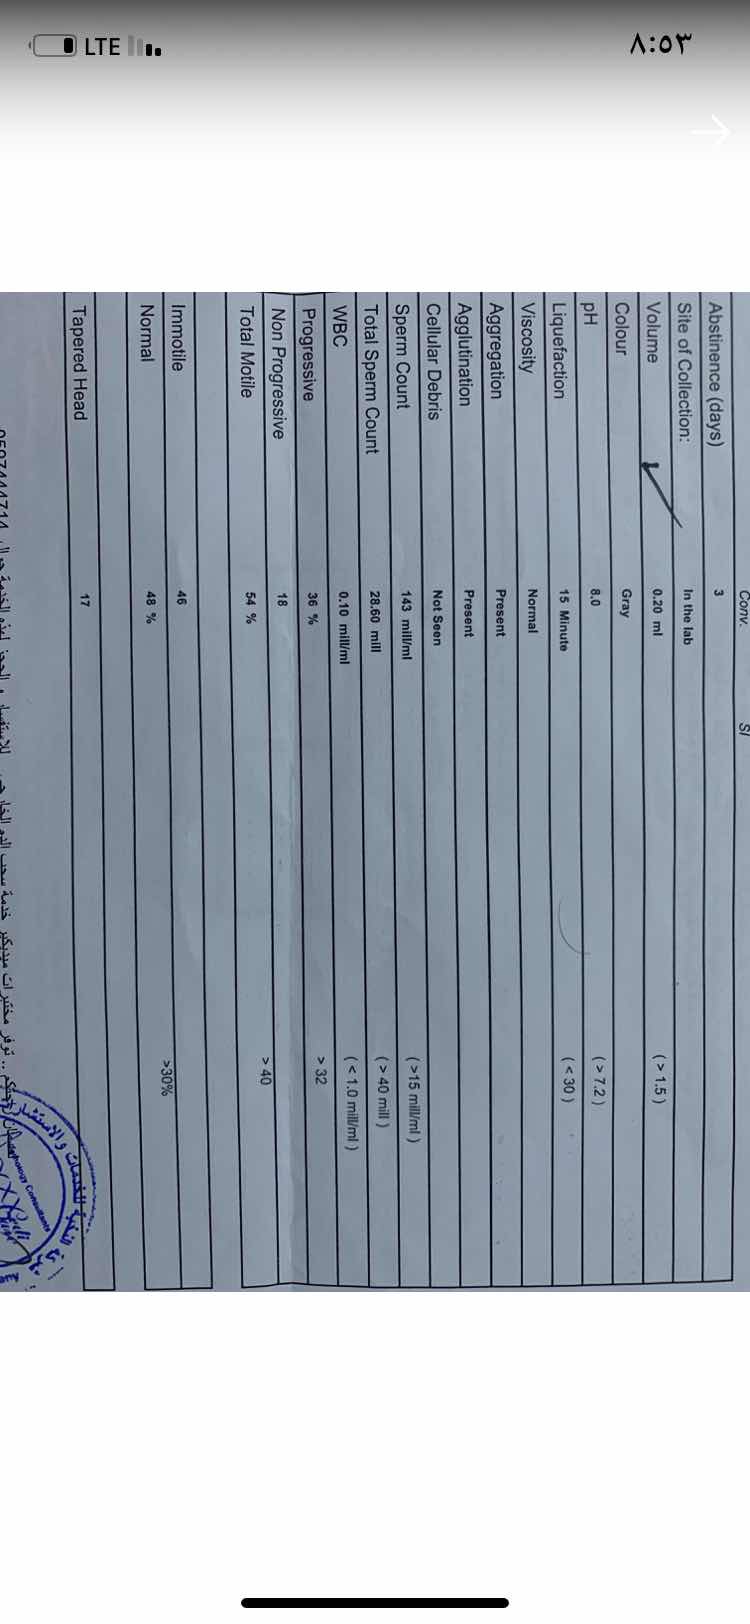 ٨:٥٣
LTE
Conv. SI
Abstinence (days) 3
Site of Collection: In the lab
Volume 0.20 ml ( > 1.5 )
Colour Gray
pH 8.0 ( > 7.2 )
Liquefaction 15 Minute ( < 30 )
Viscosity Normal
Aggregation Present
Agglutination Present
Cellular Debris Not Seen
Sperm Count 143 mill/ml ( >15 mill/ml )
Total Sperm Count 28.60 mill ( > 40 mill )
WBC 0.10 mill/ml ( < 1.0 mill/ml )
Progressive 36 % > 32
Non Progressive 18
Total Motile 54 % > 40
Immotile 46
Normal 48 % >30%
Tapered Head 17